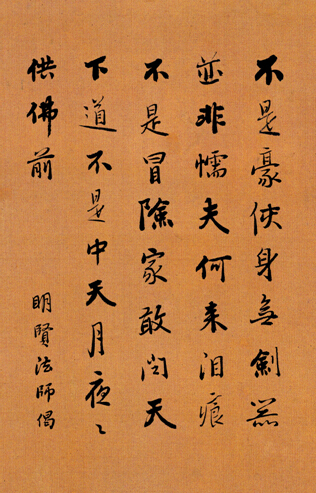 不是豪侠身無劍器
並非懦夫何来泪痕
不是冒險家敢问天
下道不是中天月夜〻
供佛前
明賢法師偈